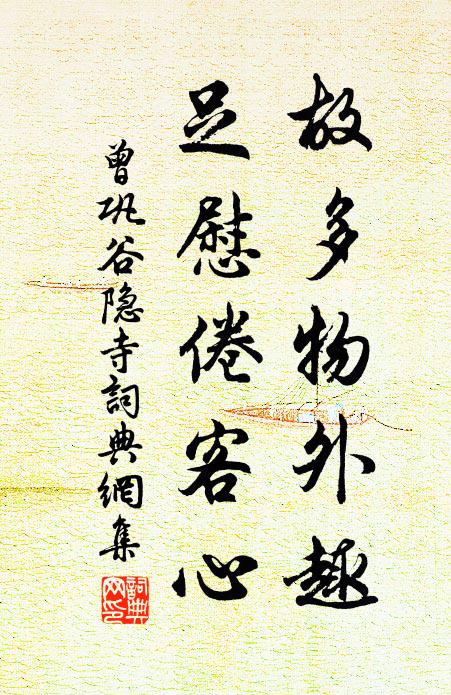 故多物外趣
足慰倦客心
曾巩谷隐寺詞典網集
詞典
网印